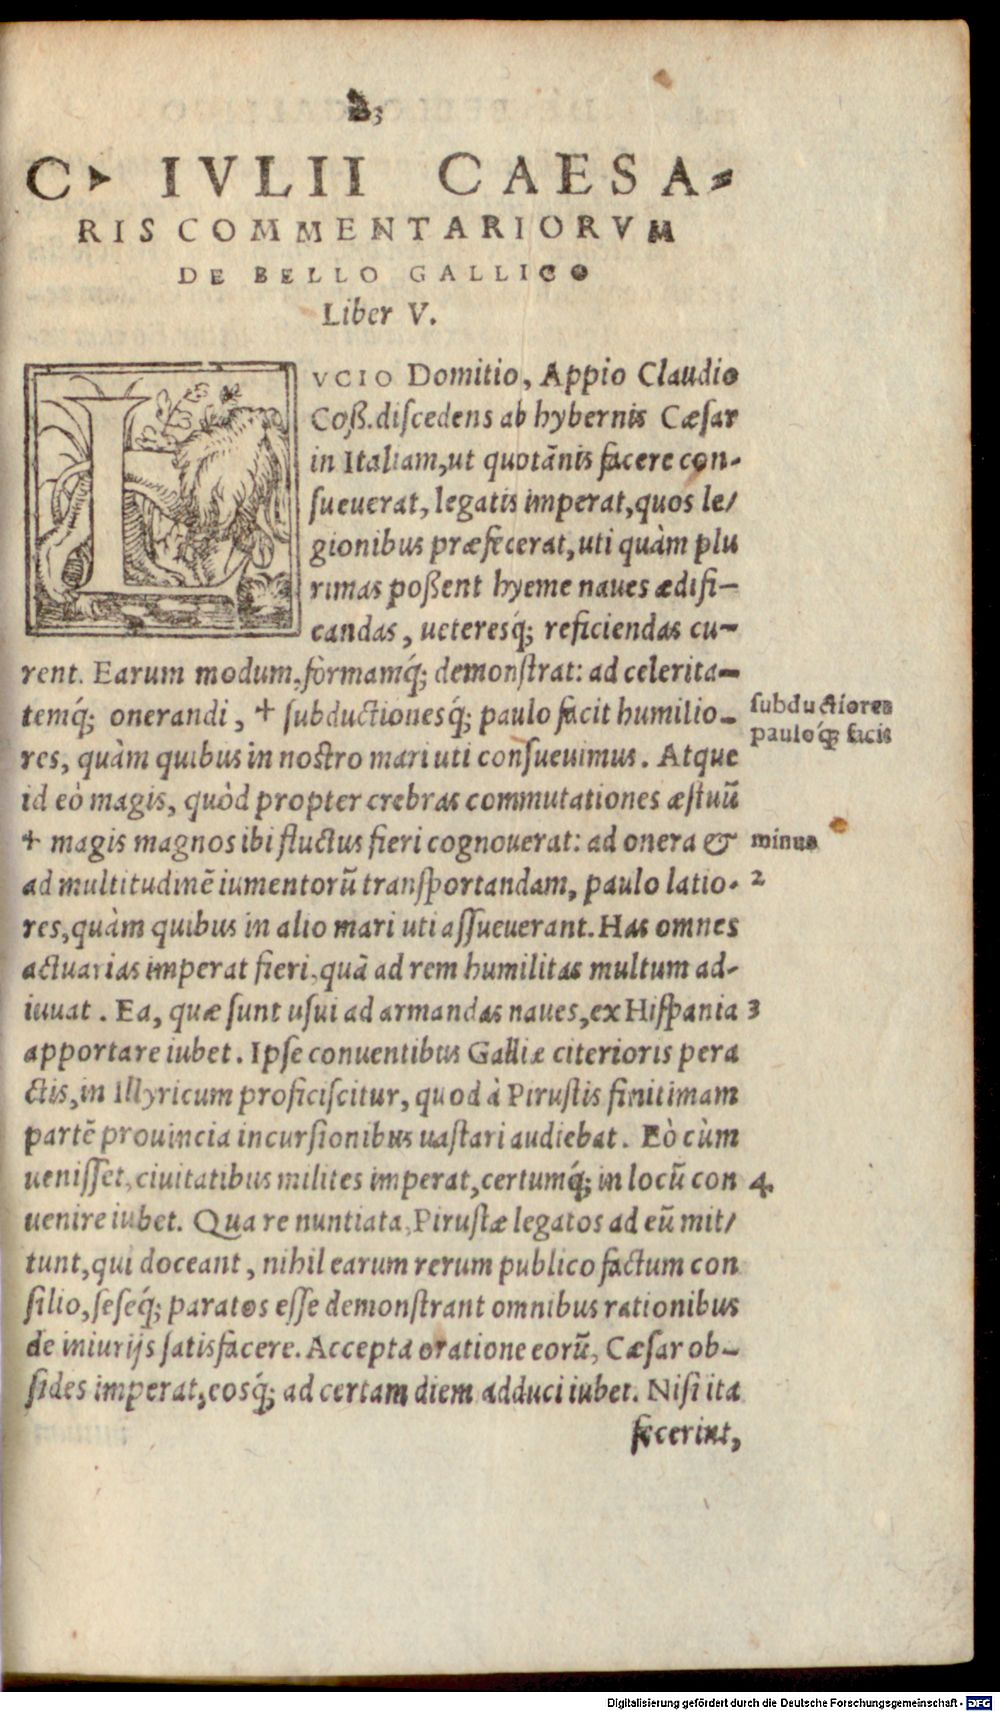 C. IVLII CAESA-
RIS COMMENTARIORVM
DE BELLO GALLICO
Liber V.
LVCIO Domitio, Appio Claudio
Coß. diſcedens ab hybernis Cæſar
in Italiam, ut quotãnis facere con-
ſueuerat, legatis imperat, quos le/
gionibus præfecerat, uti quàm plu
rimas poßent hyeme naues ædifi-
candas, ueteresq́; reficiendas cu-
rent. Earum modum, formamq́; demonſtrat: ad celerita-
temq́; onerandi, + ſubductionesq́; paulo facit humilio-
ſubductiores
pauloq́; facis
res, quàm quibus in noſtro mari uti conſueuimus. Atque
id eò magis, quòd propter crebras commutationes æſtuũ
+ magis magnos ibi fluctus fieri cognouerat: ad onera &
minus
ad multitudinẽ iumentorũ tranſportandam, paulo latio-
2
res, quàm quibus in alio mari uti aſſueuerant. Has omnes
actuarias imperat fieri, quã ad rem humilitas multum ad-
iuuat. Ea, quæ ſunt uſui ad armandas naues, ex Hiſpania
3
apportare iubet. Ipſe conuentibus Galliæ citerioris pera
ctis, in Illyricum proficiſcitur, quod à Piruſtis finitimam
partẽ prouincia incurſionibus uaſtari audiebat. Eò cùm
ueniſſet, ciuitatibus milites imperat, certumq́; in locũ con
4
uenire iubet. Qua re nuntiata, Piruſtæ legatos ad eũ mit/
tunt, qui doceant, nihil earum rerum publico factum con
ſilio, ſeſeq́; paratos eſſe demonſtrant omnibus rationibus
de iniurijs ſatisfacere. Accepta oratione eorũ, Cæſar ob-
ſides imperat, eosq́; ad certam diem adduci iubet. Niſi ita
fecerint,
Digitalisierung gefördert durch die Deutsche Forschungsgemeinschaft - DFG